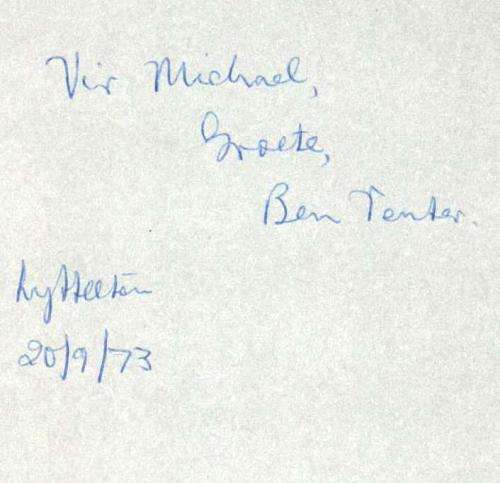 Vir Michael,
Groete,
Ben Venter.
Lyttelton
20/9/73